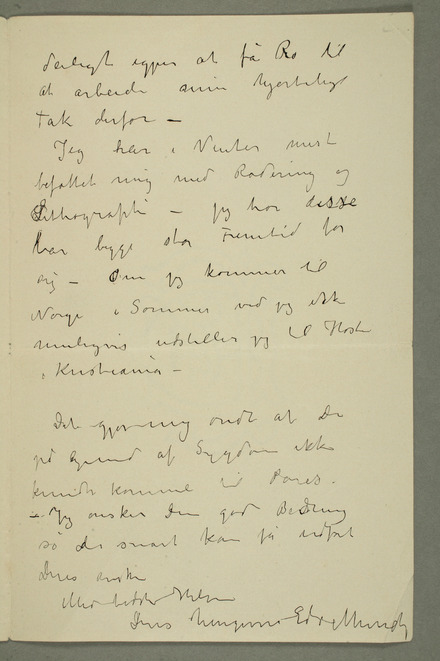 deiligt igjen at få Ro til
at arbeide min hjerteligste
Tak derfor –
Jeg har i Vinter mest
befattet mig med Radering og
Lithographi – jeg tror disse
har begge stor Fremtid for
sig – Om jeg kommer til
Norge i Sommer ved jeg ikke
muligvis udstiller jeg til Høsten
i Kristiania –
Det gjør mig ondt at De
på Grund af Sygdom ikke
kunde komme til Paris.
– Jeg ønsker Dem god Bedring
så De snart kan få udført
Deres ønske
Med bedste Hilsen
Deres hengivne Edv. Munch